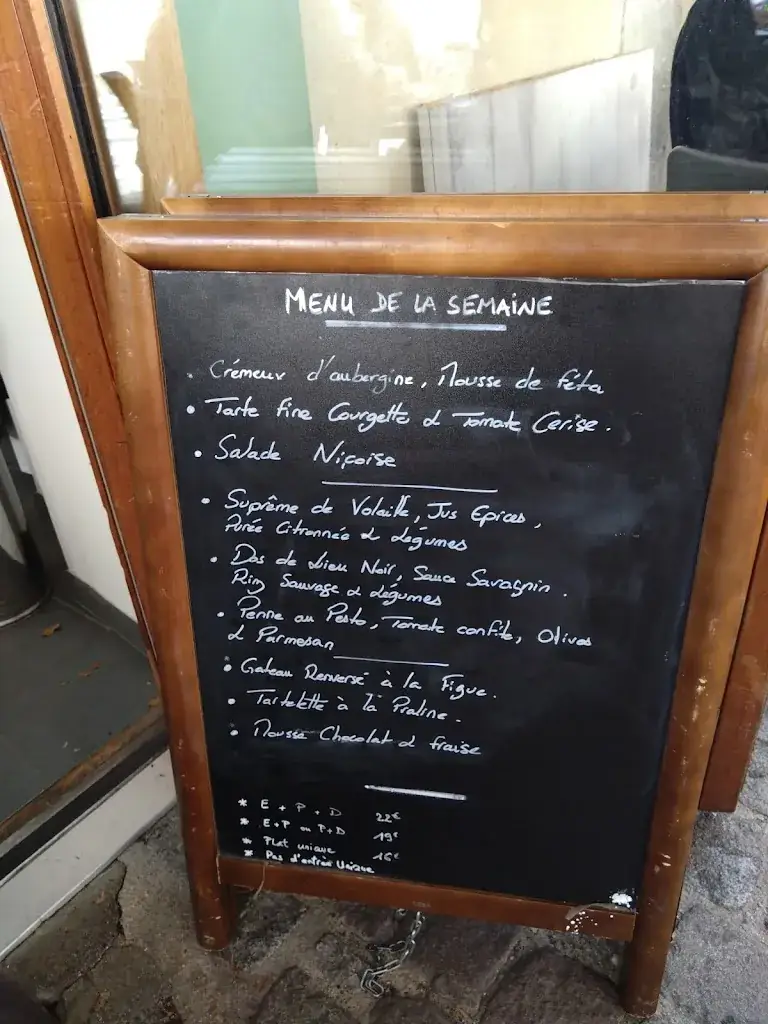 MENU DE LA SEMAINE
• Crémeux d'aubergine, Mousse de féta
• Tarte fine Courgette & Tomate Cerise.
• Salade Niçoise
• Suprême de Volaille, Jus Epices,
Purée Citronnée & légumes
• Dos de Lieu Noir, Sauce Savagnin.
Riz Sauvage & légumes
• Penne au Pesto, Tomate confite, Olives
& Parmesan
• Gateau Renversé à la Figue.
• Tartelette à la Praline.
• Mousse Chocolat & fraise
* E + P + D 22€
* E+P ou P+D 19€
* Plat unique 16€
* Pas d'entrée Unique